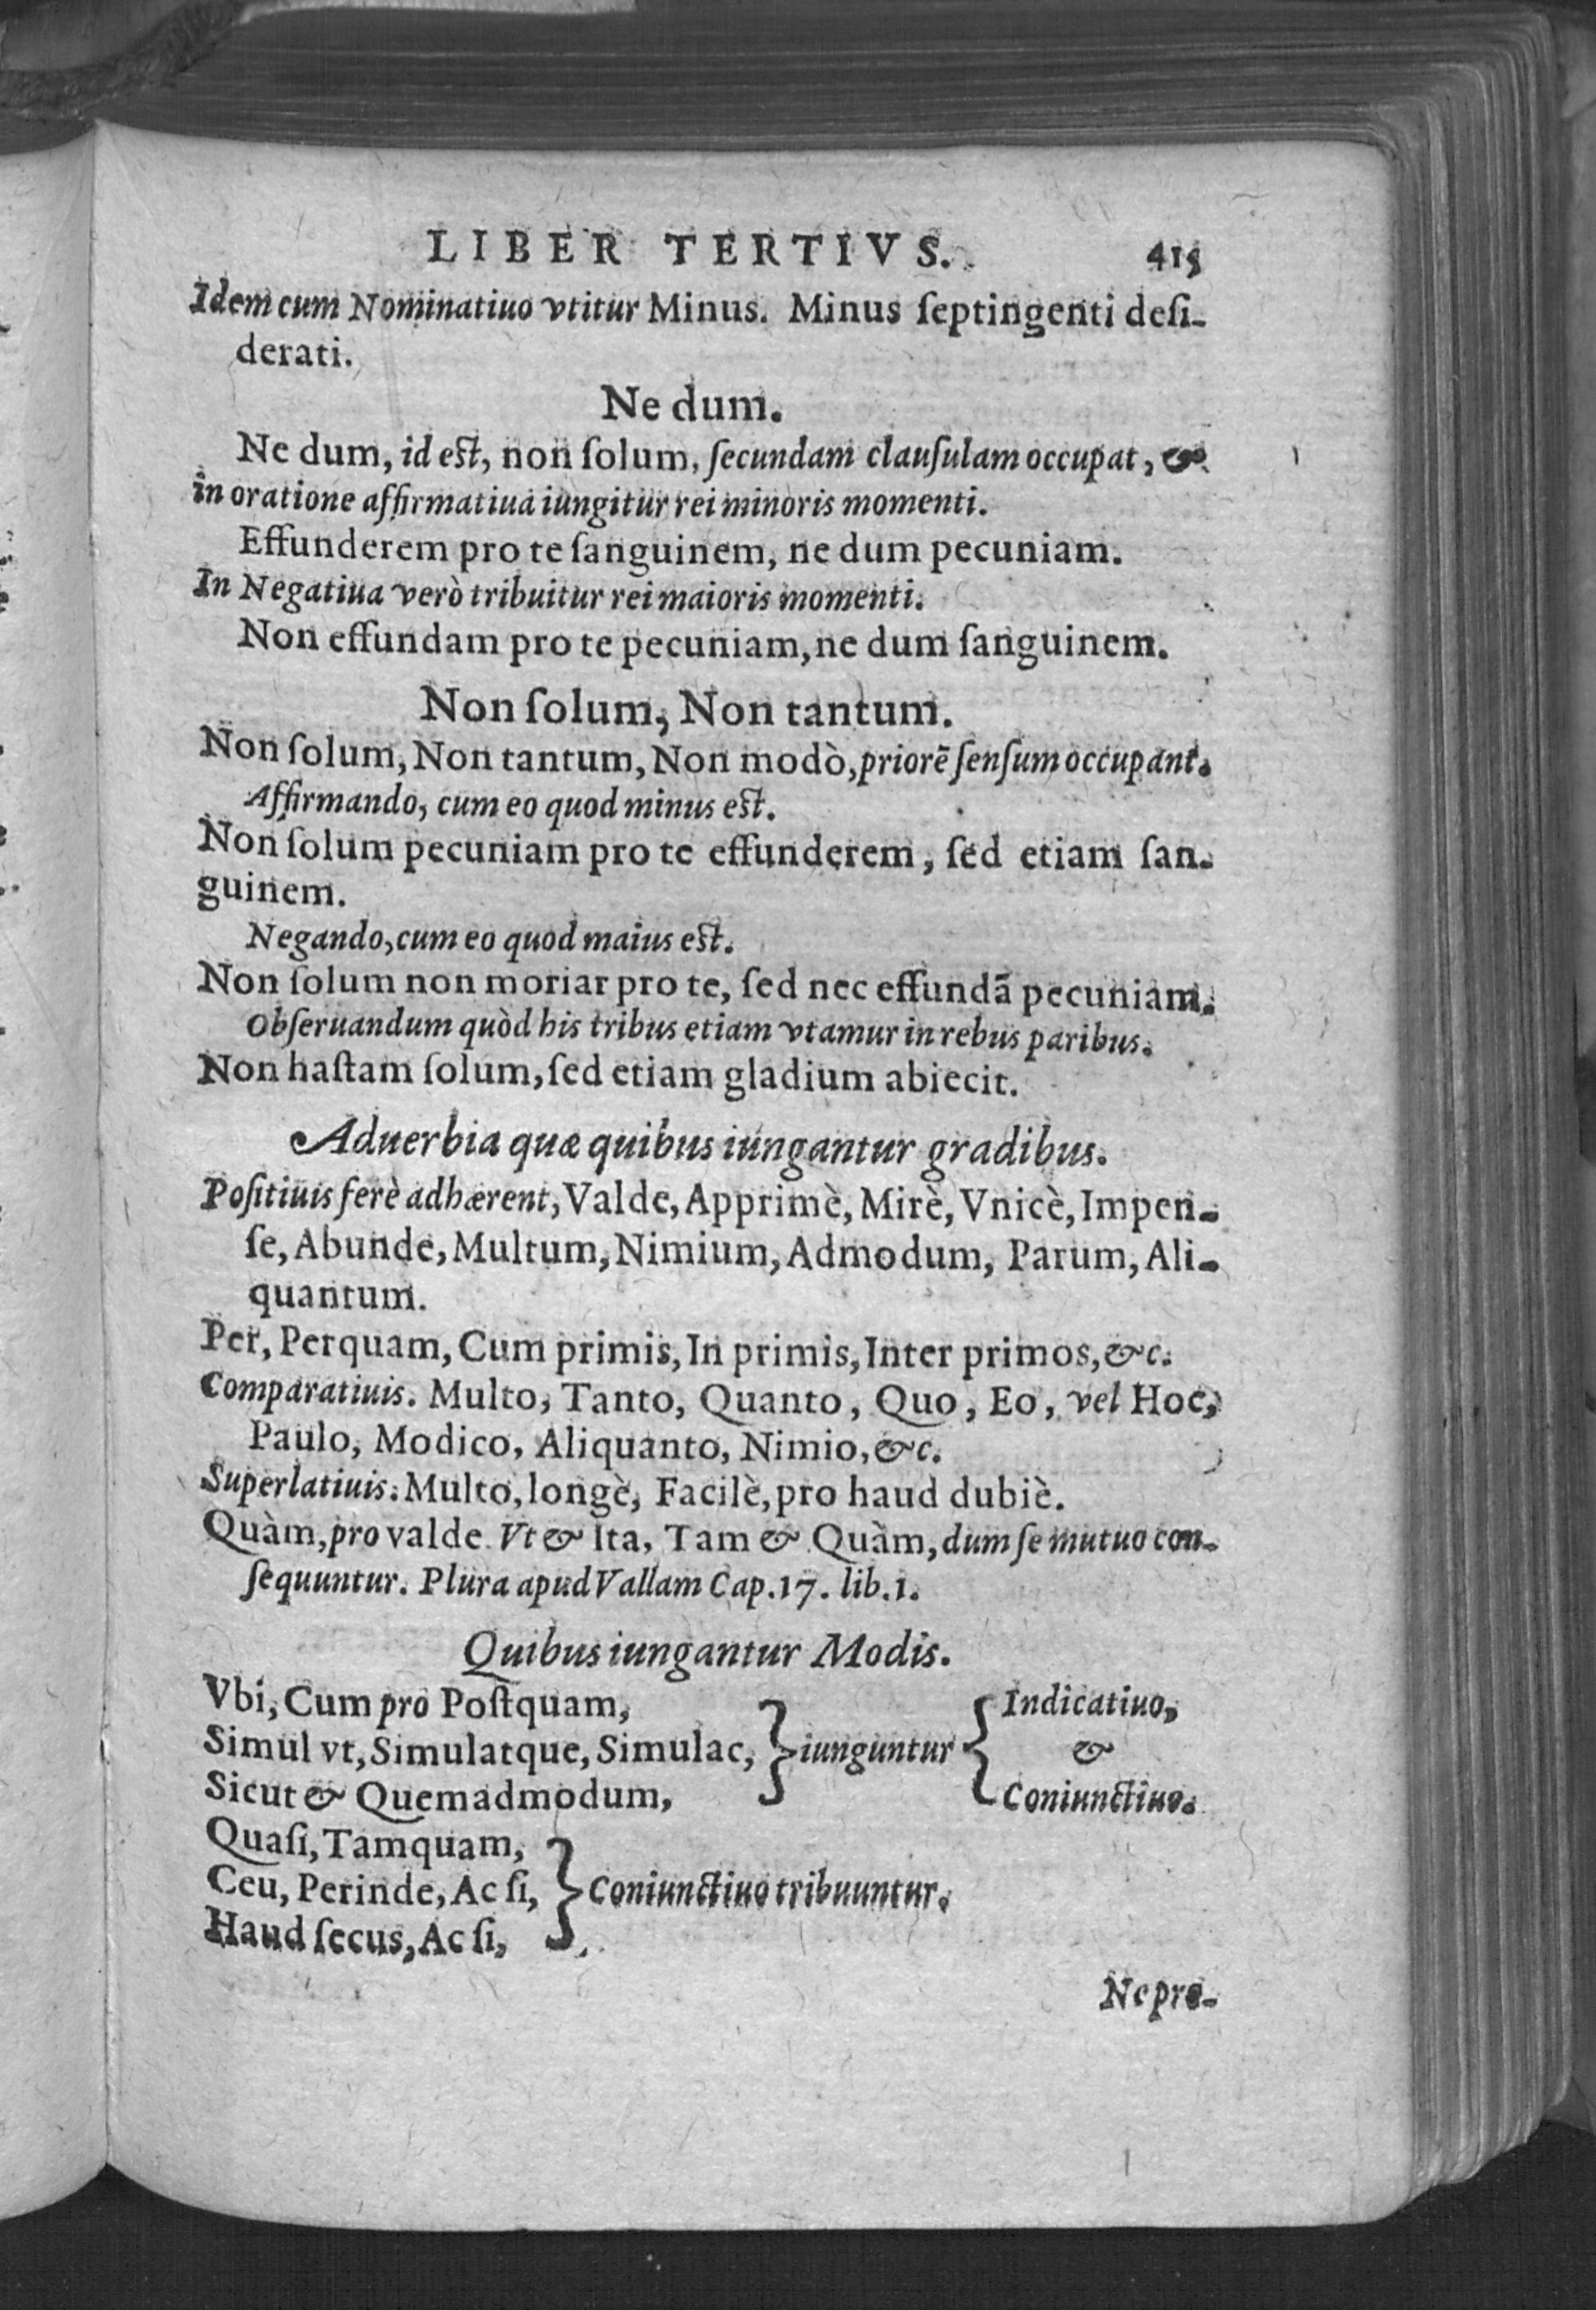 LIBER TERTIVS. 415
Idem cum Nominatiuo vtitur Minus. Minus ſeptingenti deſi-
derati.
Ne dum.
Ne dum, id est, non ſolum, ſecundam clauſulam occupat, &
in oratione affirmatiua iungitur rei minoris momenti.
Effunderem pro te ſanguinem, ne dum pecuniam.
In Negatiua verò tribuitur rei maioris momenti.
Non effundam pro te pecuniam, ne dum ſanguinem.
Non ſolum, Non tantum.
Non ſolum, Non tantum, Non modò, priorē ſenſum occupant.
Affirmando, cum eo quod minus est.
Non ſolum pecuniam pro te effunderem, ſed etiam ſan-
guinem.
Negando, cum eo quod maius est.
Non ſolum non moriar pro te, ſed nec effundā pecuniam.
Obſeruandum quòd his tribus etiam vtamur in rebus paribus.
Non haſtam ſolum, ſed etiam gladium abiecit.
Aduerbia quæ quibus iungantur gradibus.
Poſitiuis ferè adhærent, Valde, Apprimè, Mirè, Vnicè, Impen-
ſe, Abunde, Multum, Nimium, Admodum, Parum, Ali-
quantum.
Per, Perquam, Cum primis, In primis, Inter primos, &c.
Comparatiuis. Multo, Tanto, Quanto, Quo, Eo, vel Hoc,
Paulo, Modico, Aliquanto, Nimio, &c.
Superlatiuis. Multo, longè, Facilè, pro haud dubiè.
Quàm, pro valde. Vt & Ita, Tam & Quàm, dum ſe mutuo con-
ſequuntur. Plura apud Vallam Cap. 17. lib. 1.
Quibus iungantur Modis.
Vbi, Cum pro Poſtquam,
Simul vt, Simulatque, Simulac,
Sicut & Quemadmodum,
} iunguntur {
Indicatiuo,
&
Coniunctiuo.
Quaſi, Tamquam,
Ceu, Perinde, Ac ſi,
Haud ſecus, Ac ſi,
} Coniunctiuo tribuuntur.
Ne pro-